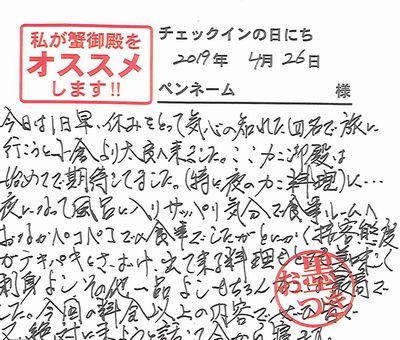 私が蟹御殿を
オススメ
します!!
チェックインの日にち
2019年 4月26日
ペンネーム 様
今日は1日早い休みをとって気心の知れた四名で旅に
行こうと小倉より大良へ来ました。ここカニ御殿は
始めてで期待してました。(特に夜のカニ料理)に…
夜になって風呂に入りサッパリ気分で食事ルームへ
おなかペコペコでの食事でしたがとにかく(接客態度
がテキパキとさわやか、出て来る料理もとても美味しく
刺身よしその他一品よしもちろん 最高で
した。今回の料金以上の内容で大満足
又絶対に来ようと話して今から寝ます。
お墨つき